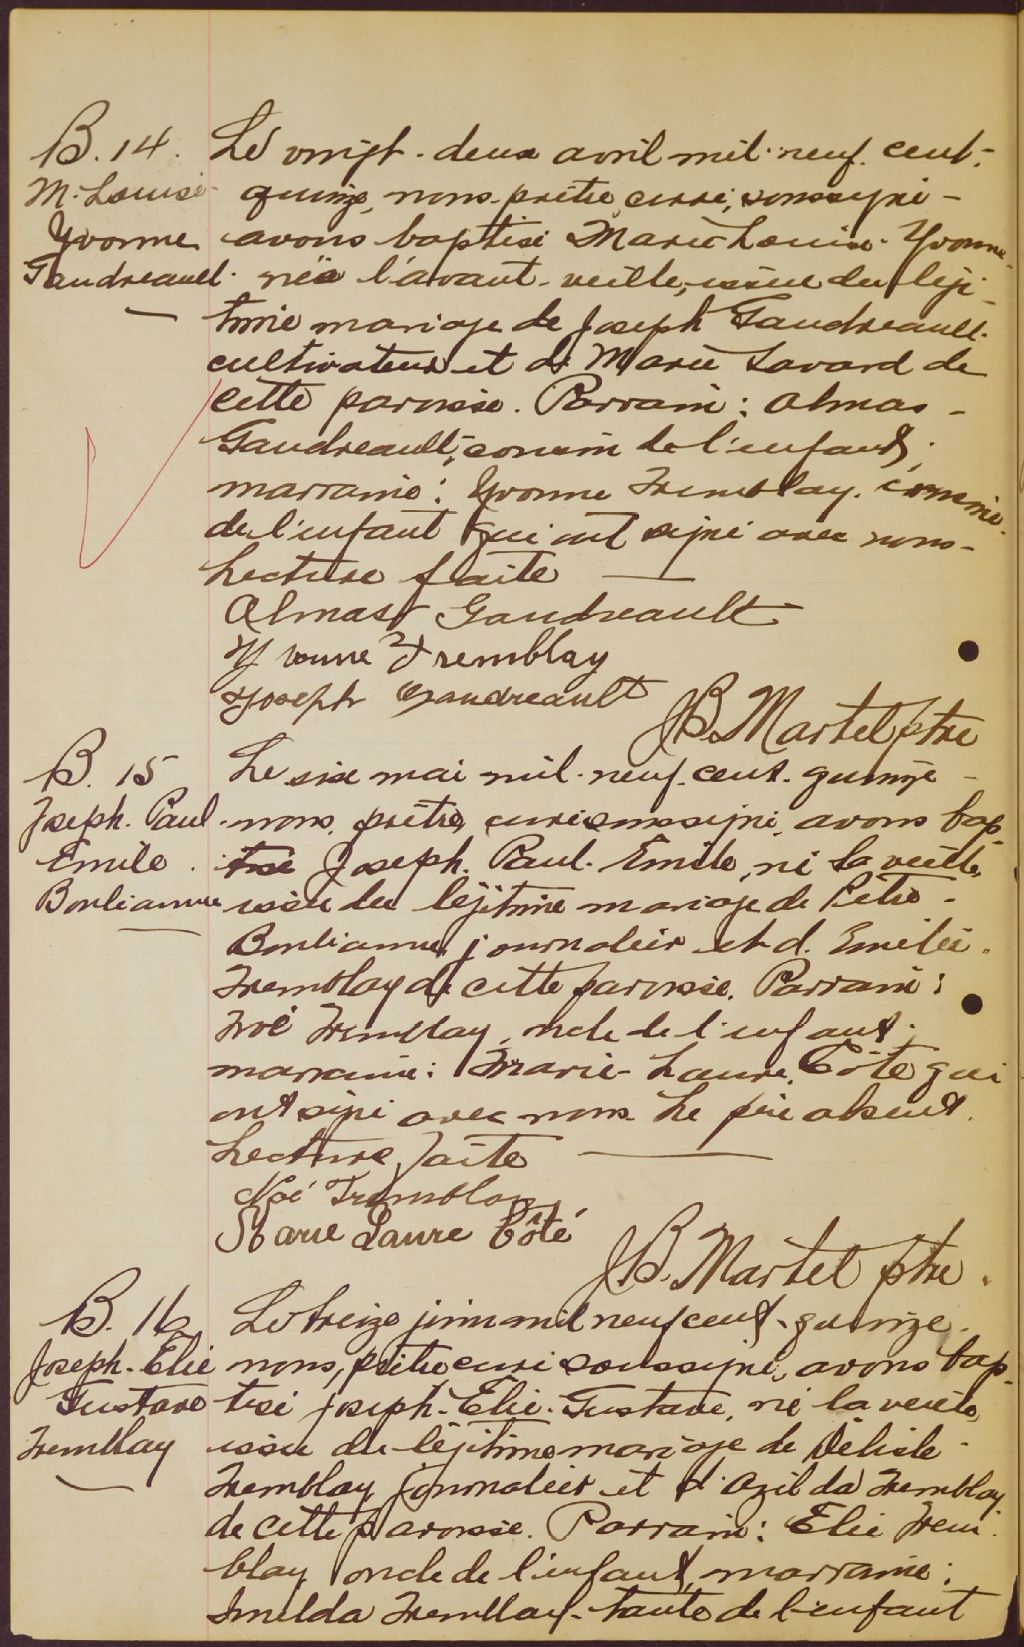 B. 14.
M. Louise
Yvonne
Gaudreault.
Le vingt-deux avril mil-neuf-cent-
quinze, nous prêtre, curé, soussigné -
avons baptisé Marie Louise-Yvonne
née l'avant-veille, issue du légi-
time mariage de Joseph Gaudreault
cultivateur et de Marie Savard de
cette paroisse. Parrain: Almas -
Gaudreault, cousin de l'enfant;
marraine: Yvonne Tremblay, cousine
de l'enfant qui ont signé avec nous-
Lecture faite
Almas Gaudreault
Yvonne Tremblay
Joseph Gaudreault
J.B. Martel ptre
B. 15
Joseph. Paul
Emile
Boulianne
Le six mai mil-neuf-cent-quinze -
nous, prêtre, curé soussigné, avons bap-
tisé Joseph. Paul. Emile, né la veille,
issu du légitime mariage de Pitre -
Boulianne, journalier et d'Emilie
Tremblay de cette paroisse. Parrain:
Noé Tremblay, oncle de l'enfant;
marraine: Marie-Laure Côté qui
ont signé avec nous. Le père absent.
Lecture faite
Noé Tremblay
Marie Laure Côté
J.B. Martel ptre.
B. 16
Joseph-Elie
Gustave
Tremblay
Le treize juin mil neuf cent-quinze.
nous, prêtre curé soussigné, avons bap-
tisé Joseph-Elie-Gustave, né la veille,
issu du légitime mariage de Délisle -
Tremblay journalier et d'Azilda Tremblay
de cette paroisse. Parrain: Elie Trem-
blay oncle de l'enfant, marraine:
Imelda Tremblay-tante de l'enfant